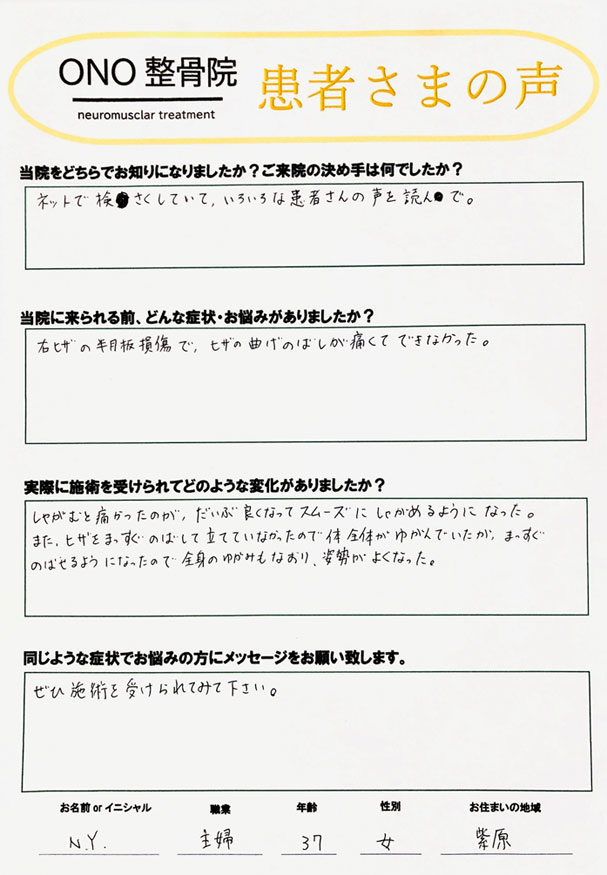 ONO 整骨院
neuromusclar treatment
患者さまの声
当院をどちらでお知りになりましたか？ご来院の決め手は何でしたか？
ネットで検さくしていて、いろいろな患者さんの声を読んで。
当院に来られる前、どんな症状・お悩みがありましたか？
右ヒザの半月板損傷で、ヒザの曲げのばしが痛くてできなかった。
実際に施術を受けられてどのような変化がありましたか？
しゃがむと痛かったのが、だいぶ良くなってスムーズにしゃがめるようになった。
また、ヒザをまっすぐのばして立てていなかったので体全体がゆがんでいたが、まっすぐ
のばせるようになったので全身のゆがみもなおり、姿勢がよくなった。
同じような症状でお悩みの方にメッセージをお願い致します。
ぜひ施術を受けられてみて下さい。
お名前 or イニシャル 職業 年齢 性別 お住まいの地域
N.Y. 主婦 37 女 紫原